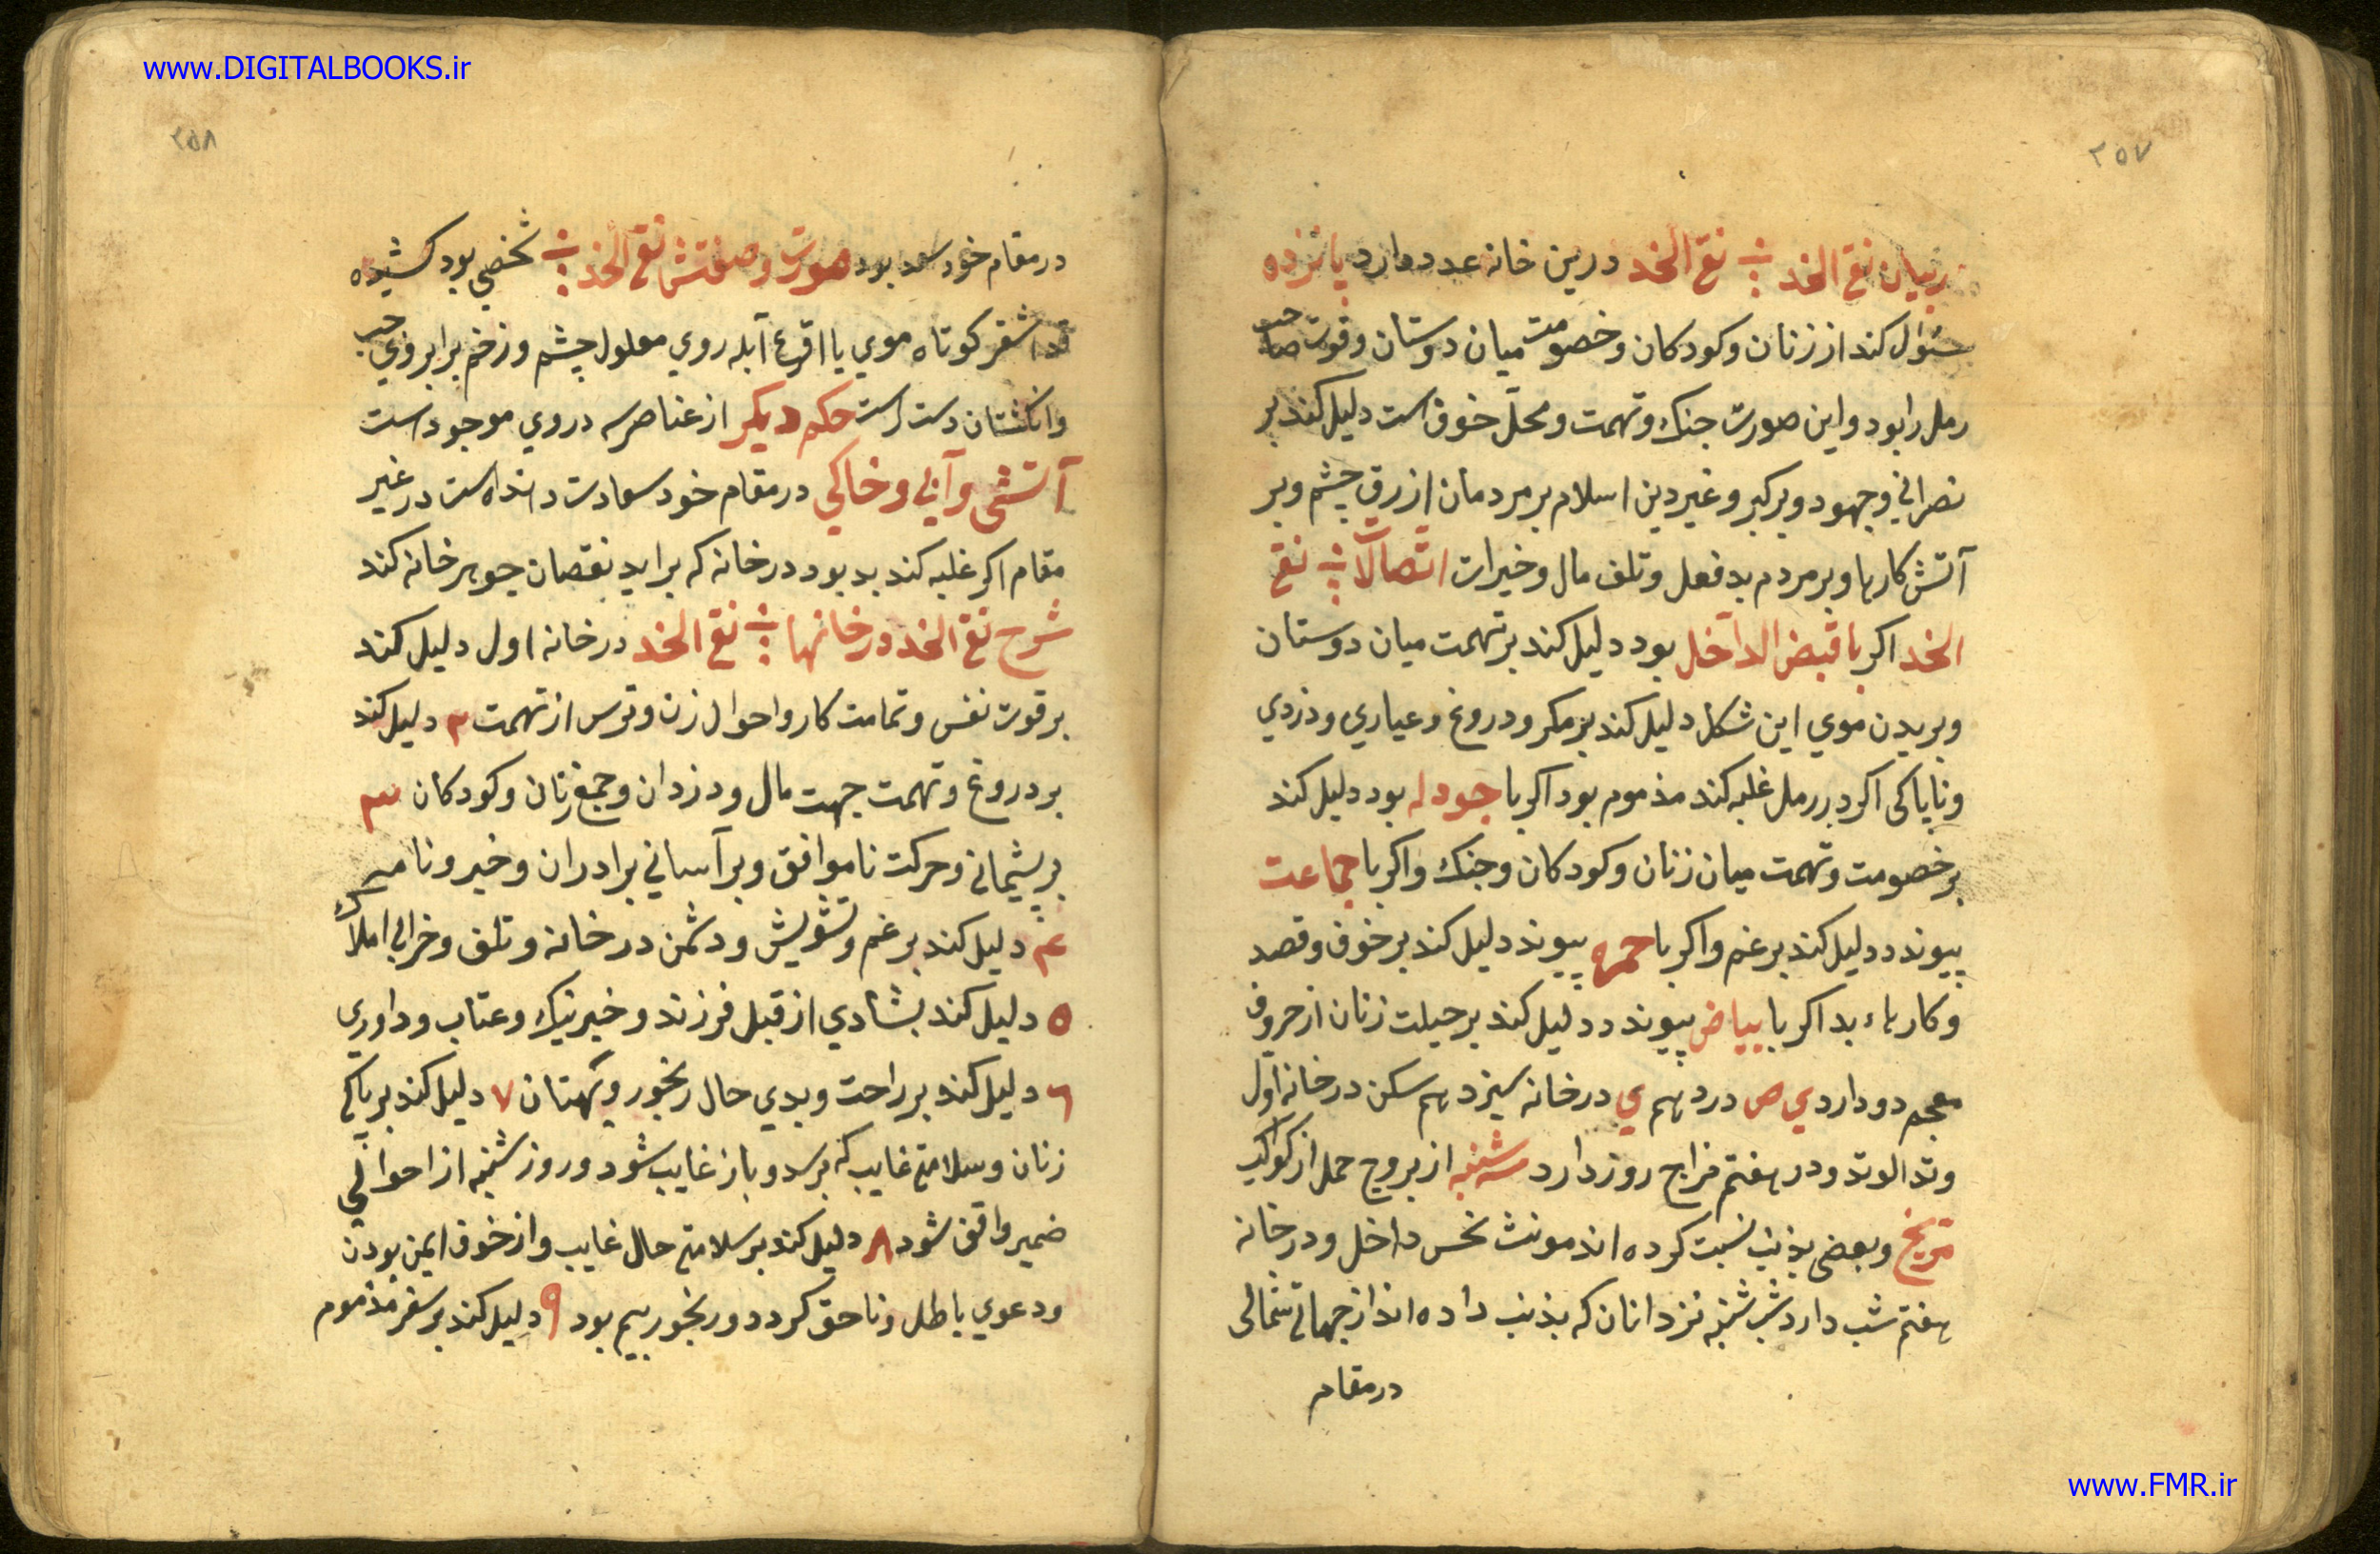 www.DIGITALBOOKS.ir
۲۵۷
در بیان نقی الخد نقی الخد درین خانه عدد دارد پانزده
سئوال کند از زنان و کودکان و خصومت میان دوستان و قوت صاحب
رمل را بود و این صورت جنک و تهمت و محلّ خوف است دلیل کند بر
نصرانی و جهود و بر کبر و غیر دین اسلام بر مردمان ازرق چشم و بر
آتش کارها و بر مردم بد فعل و تلف مال و خیرات اتّصالات نقی
الخد اکر با قبض الداخل بود دلیل کند بر تهمت میان دوستان
و بریدن موی این شکل دلیل کند بر مکر و دروغ و عیاری و دزدی
و ناپاکی اکر در رمل غلبه کند مذموم بود اکر با جودله بود دلیل کند
بر خصومت و تهمت میان زنان و کودکان و جنک و اکر با جماعت
پیوندد دلیل کند بر غم و اکر با حمره پیوند دلیل کند بر خوف و قصد
و کارهاء بد اکر با بیاض پیوندد دلیل کند بر حیلت زنان از حروف
معجم دو دارد ی ص در دهم ی در خانه سیزدهم سکن در خانه اول
وتد الوتد و در هفتم مزاج روز دارد سه شنبه از بروج حمل از کواکب
مریخ و بعضی بذنب نسبت کرده اند مونث نحس داخل و در خانه
هفتم شب دارد شب شنبه نزد انان که بذنب داده اند از جهات شمالی
در مقام
۲۵۸
در مقام خود سعد بود صورت و صفتش نقی الخد شخصی بود کشیده
قد اشقر کوتاه موی یا اقرع آبله روی معلول چشم و زخم بر ابروی چپ
و انکشتان دست راست حکم دیکر از عناصر سه در وی موجود است
آتشی و آبی و خاکی در مقام خود سعادت دهنده است در غیر
مقام اکر غلبه کند بد بود در خانه که بر اید نقصان جوهر خانه کند
شرح نقی الخد در خانها نقی الخد در خانه اول دلیل کند
بر قوت نفس و تمامت کار و احوال زن و ترس از تهمت ۲ دلیل کند
بر دروغ و تهمت جهت مال و دزدان و جمع زنان و کودکان ۳
بر پشیمانی و حرکت ناموافق و بر آسانی برادران و خیر و نامه
۴ دلیل کند بر غم و تشویش و دشمن در خانه و تلف و خرابی املاک
۵ دلیل کند بشادی از قبل فرزند و خیر نیک و عتاب و داوری
۶ دلیل کند بر راحت و بدی حال رنجور و بهتان ۷ دلیل کند بر پاکی
زنان و سلامتی غایب که برسد و باز غایب شود و روز شنبه از احوال
ضمیر واقف شود ۸ دلیل کند بر سلامتی حال غایب و از خوف ایمن بودن
و دعوی باطل و ناحق کردد و رنجور بیم بود ۹ دلیل کند بر سفر مذموم
www.FMR.ir